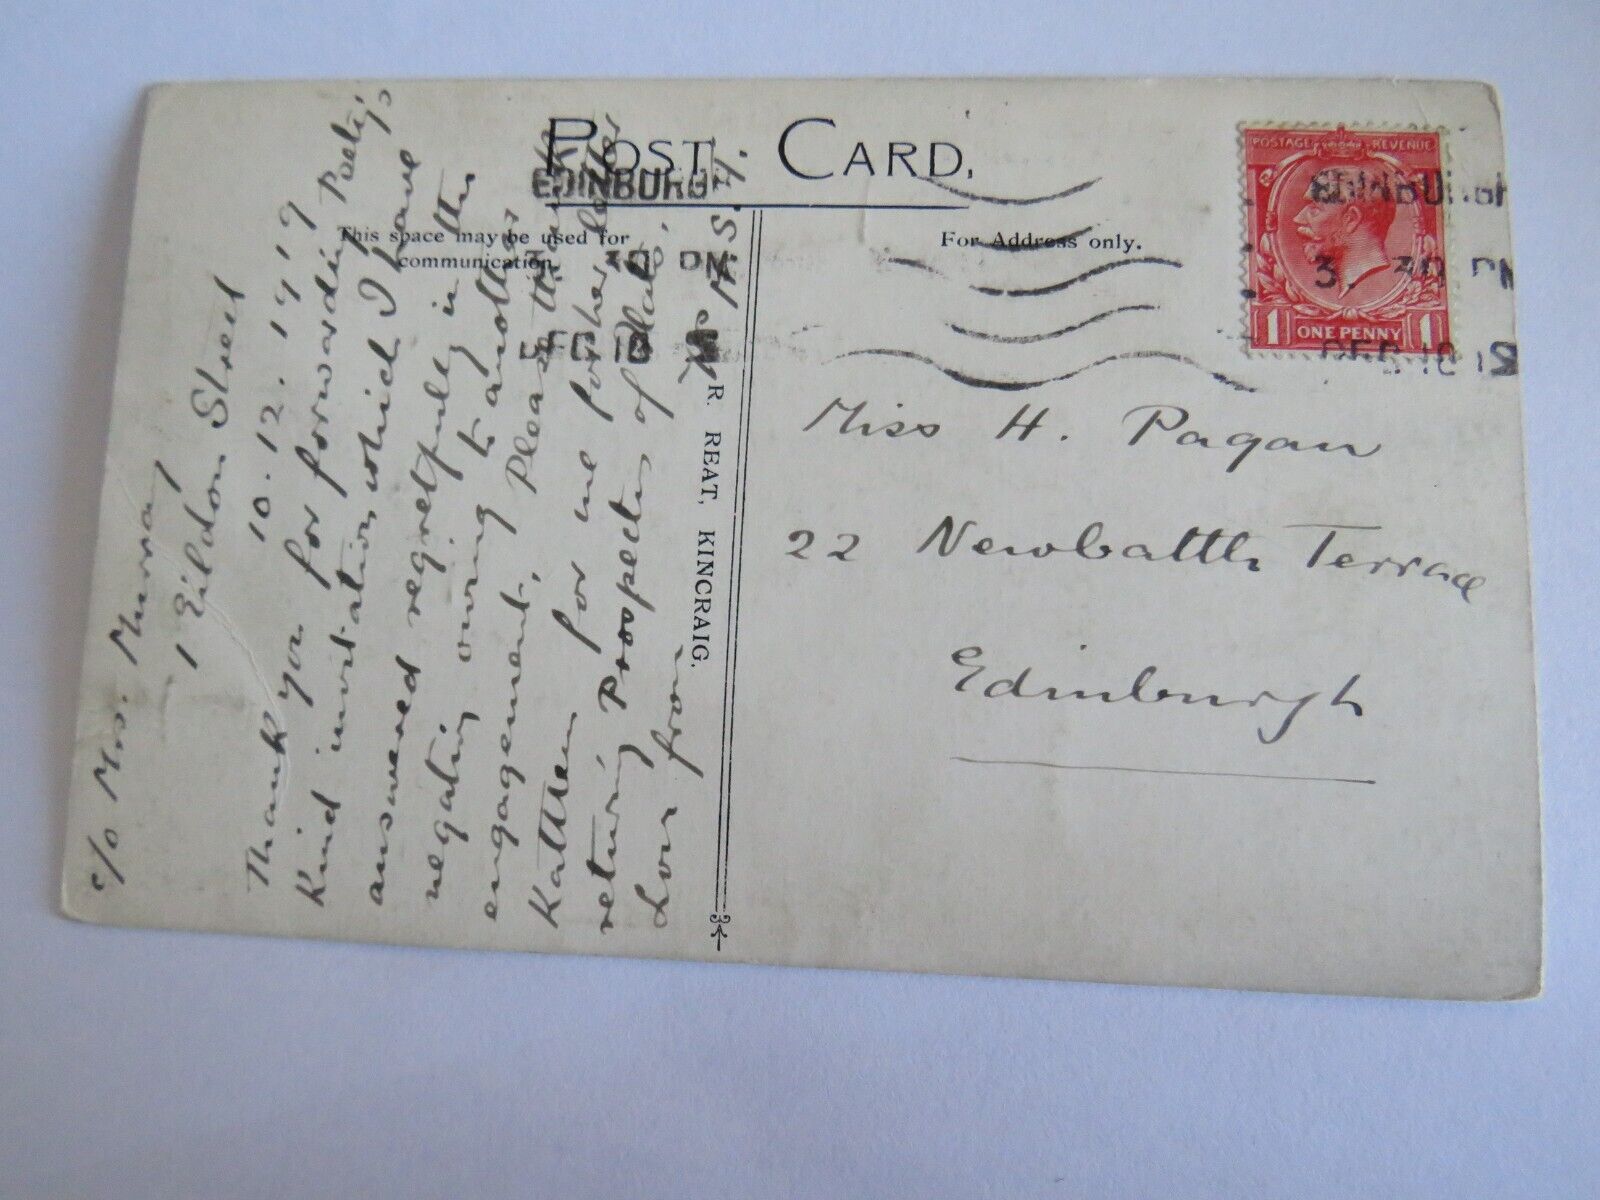 POST CARD.
This space may be used for
communication
For Address only.
POSTAGE REVENUE
1 ONE PENNY 1
EDINBURGH
3. 30 PM
DEC 10 19
EDINBURG
30 PM
DEC 10
R. REAT, KINCRAIG.
c/o Mrs. Murray
1 Eildon Street
10.12.1919
Thank you for forwarding
kind invitation, which I have
answered regretfully in the
negative owing to another
engagement. Please thank
for me for her letter
returning Prospectus of
Love from
H.S.H.
Miss H. Pagan
22 Newbattle Terrace
Edinburgh